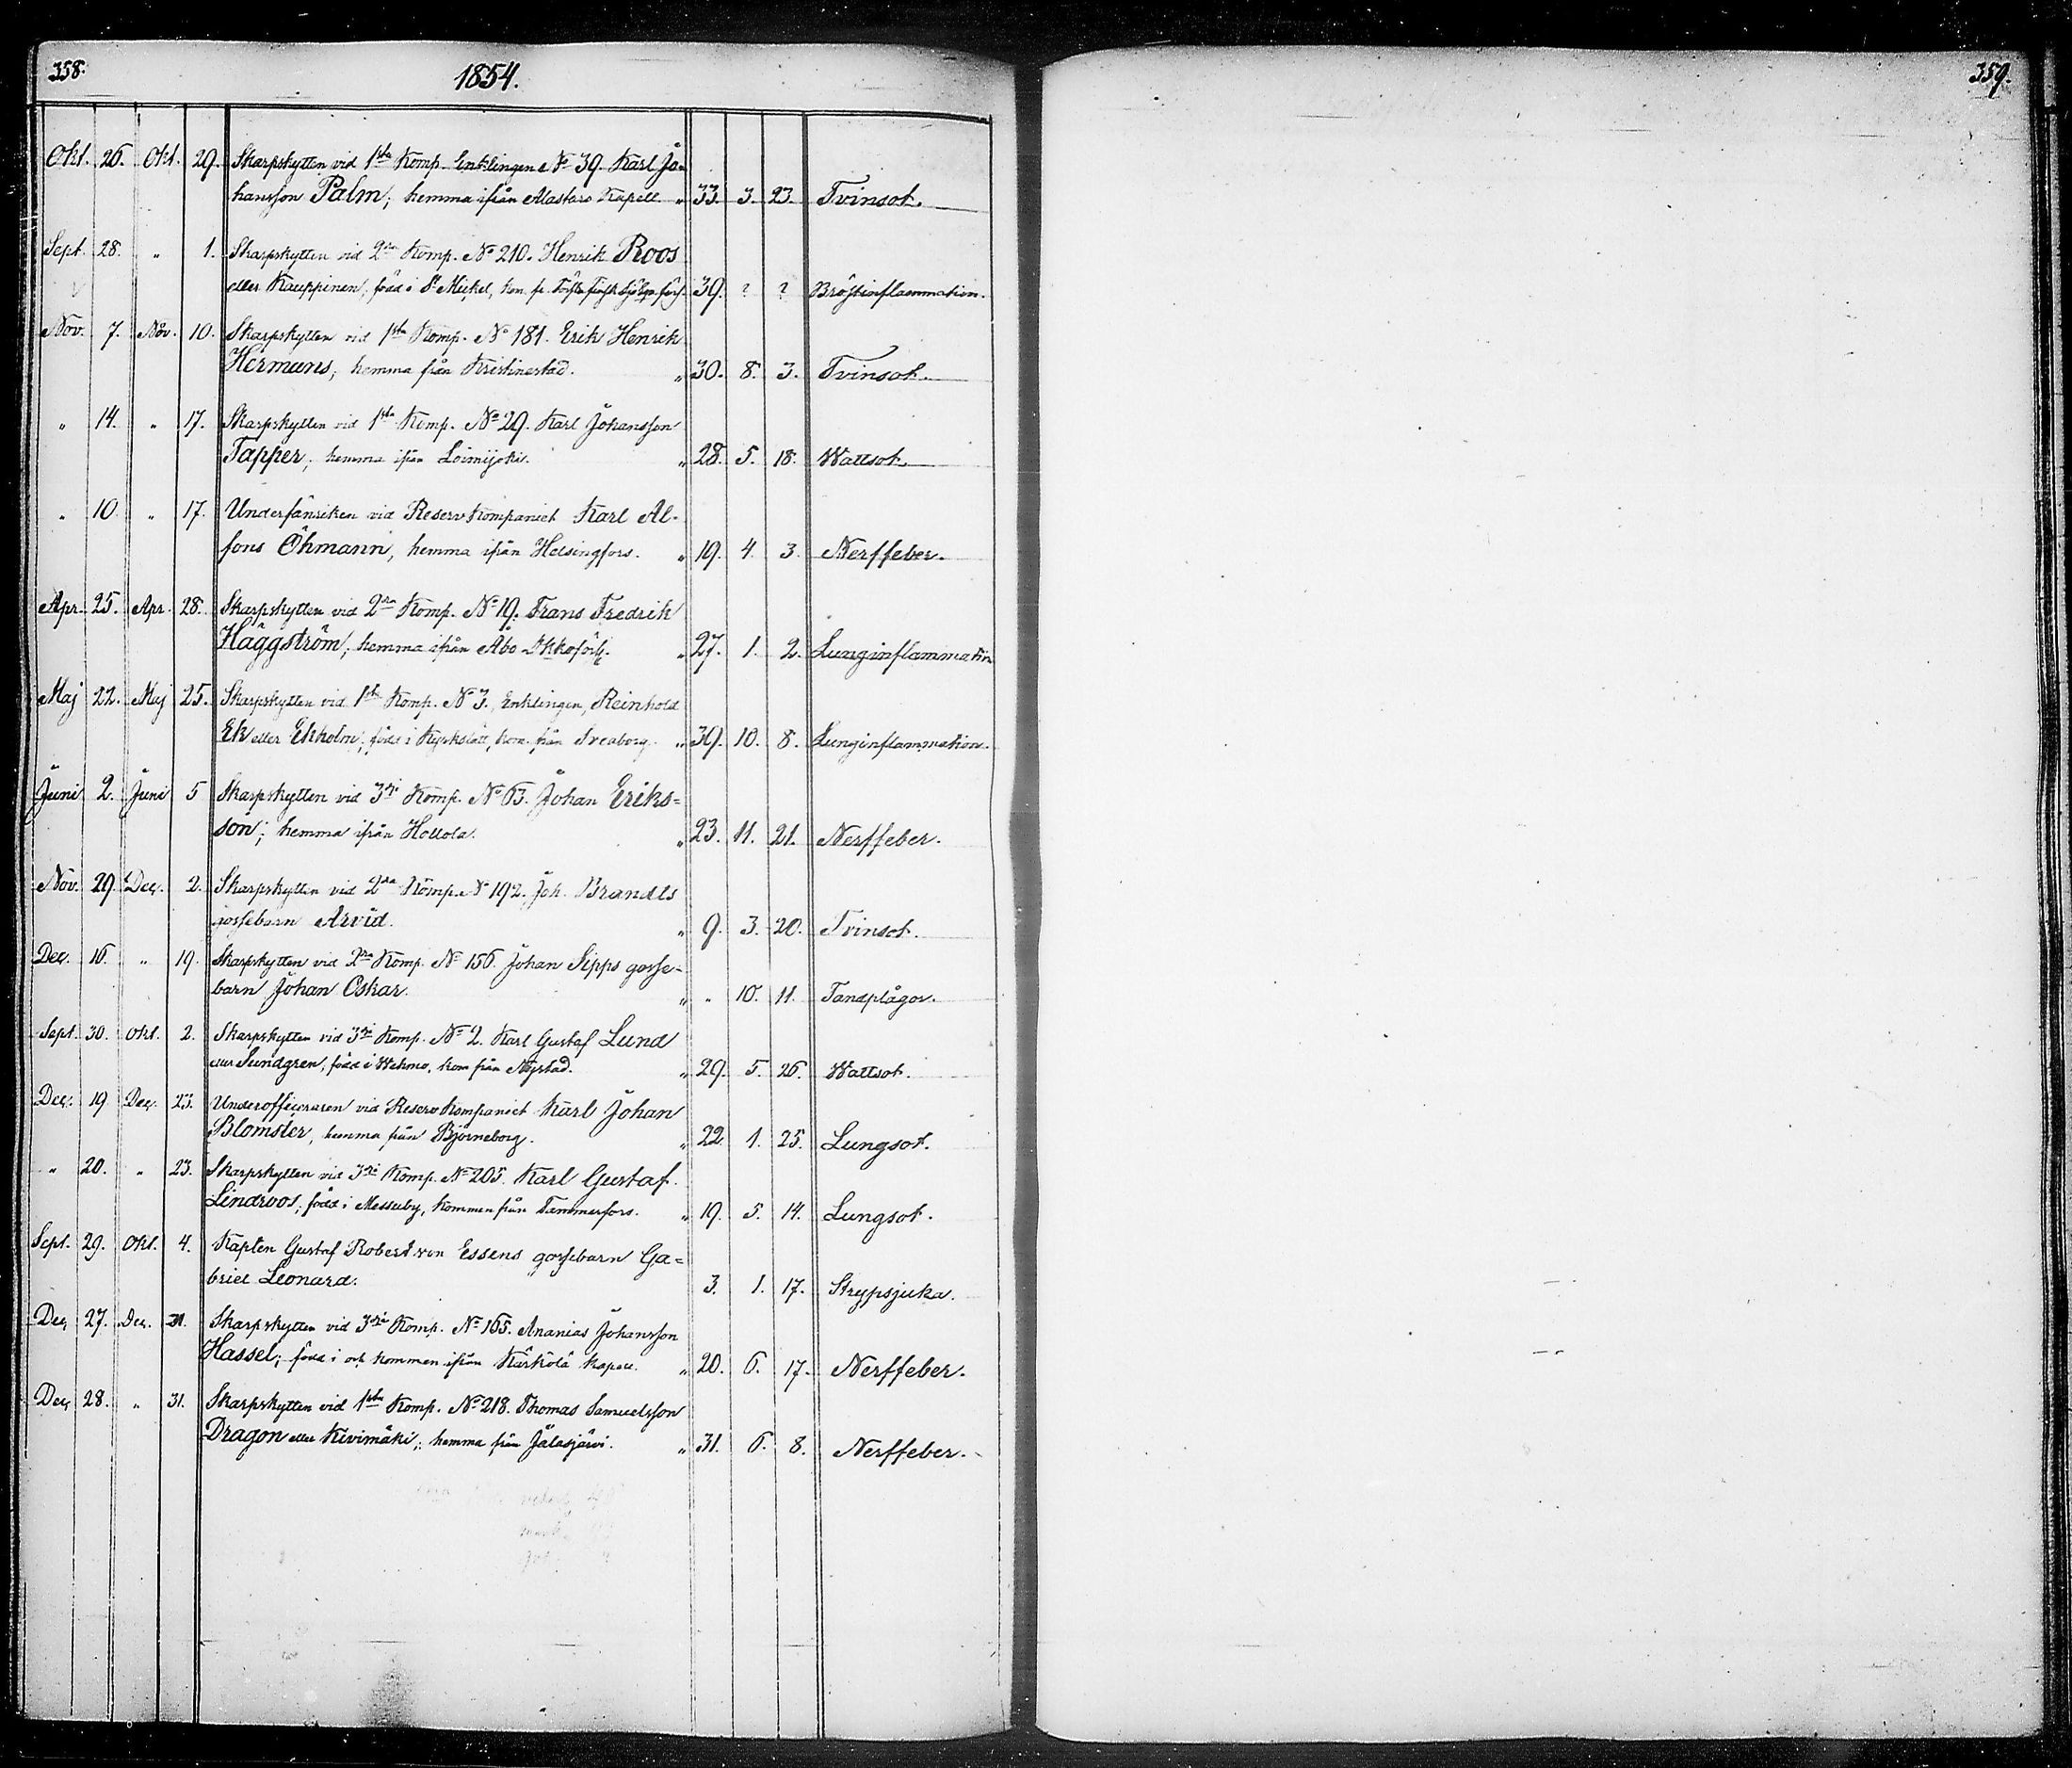 358.
1854.
359.
Okt. 26. Okt. 29. Skarpskytten vid 1sta Komp. Enklingen No 39. Karl Jo-
hansson Palm; hemma ifrån Alastaro Kapell. " 33. 3. 23. Tvinsot.
Sept. 28. " 1. Skarpskytten vid 2dra Komp. No 210. Henrik Roos
eller Kauppinen, född i St Mickel, kom fr. 39. ? ? Bröstinflammation.
Nov. 7. Nov. 10. Skarpskytten vid 1sta Komp. No 181. Erik Henrik
Hermans, hemma från Kristinestad. " 30. 8. 3. Tvinsot.
" 14. " 17. Skarpskytten vid 1sta Komp. No 29. Karl Johansson
Tapper, hemma ifrån Loimijoki. " 28. 5. 18. Wattsot.
" 10. " 17. Underfänriken vid Reserv Kompaniet Karl Al-
fons Öhmann, hemma ifrån Helsingfors. " 19. 4. 3. Nerffeber.
Apr. 25. Apr. 28. Skarpskytten vid 2dra Komp. No 19. Frans Fredrik
Häggström, hemma ifrån Åbo " 27. 1. 2. Lunginflammation
Maj 22. Maj 25. Skarpskytten vid 1sta Komp. No 3. Enklingen, Reinhold
Ek eller Ekholm, född i Kyrkslätt, kom. från Sveaborg. " 39. 10. 8. Lunginflammation.
Juni 2. Juni 5 Skarpskytten vid 3dje Komp. No 63. Johan Eriks=
son; hemma ifrån Hollola. " 23. 11. 21. Nerffeber.
Nov. 29. Dec. 2. Skarpskytten vid 2dra Komp. No 192. Joh. Brandts
gossebarn Arvid. " 9. 3. 20. Tvinsot.
Dec. 16. " 19. Skarpskytten vid 2dra Komp. No 156. Johan Sipps gosse-
barn Johan Oskar. " " 10. 11. Tandplågor.
Sept. 30. Okt. 2. Skarpskytten vid 3dje Komp. No 2. Karl Gustaf Lund
eller Lundgren, född i Wehmo, kom från Nystad. " 29. 5. 26. Wattsot.
Dec. 19 Dec. 23. Underofficeraren vid Reserv Kompaniet Karl Johan
Blomster, hemma från Björneborg. " 22 1. 25. Lungsot.
" 20. " 23. Skarpskytten vid 3dje Komp. No 205. Karl Gustaf
Lindroos, född i Messuby, kommen från Tammerfors. " 19. 5. 14. Lungsot.
Sept. 29. Okt. 4. Kapten Gustaf Robert von Essens gossebarn Ga=
briel Leonard. 3. 1. 17. Strypsjuka.
Dec. 27. Dec. 31. Skarpskytten vid 3dje Komp. No 165. Ananias Johansson
Hassel; född i och kommen ifrån Kärkölä kapell. " 20. 6. 17. Nerffeber.
Dec. 28. " 31. Skarpskytten vid 1sta Komp. No 218. Thomas Samuelsson
Dragon eller Kivimäki; hemma från Jalasjärvi. " 31. 6. 8. Nerffeber.